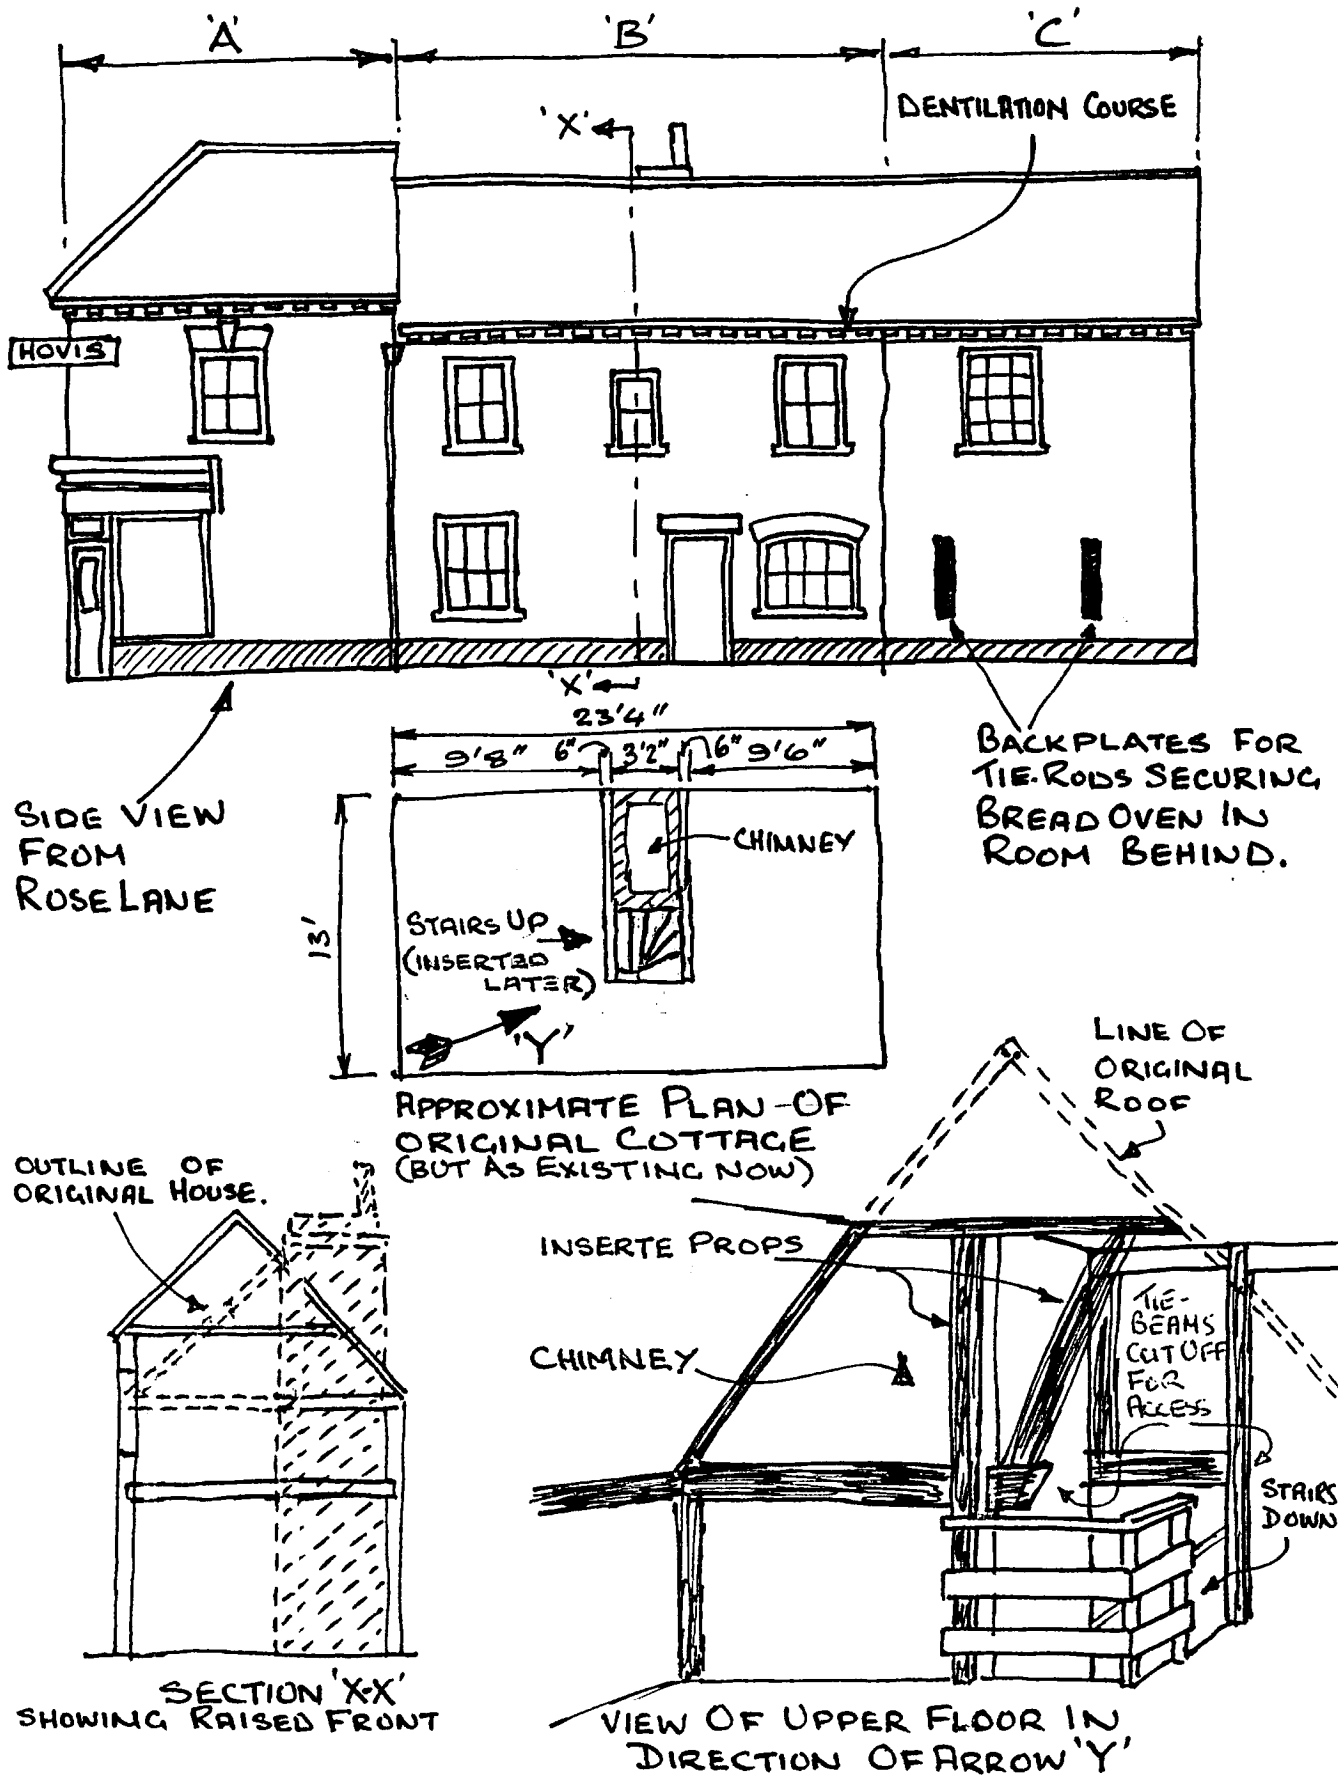 'A'
'B'
'C'
DENTILATION COURSE
'X'
HOVIS
'X'
23'4"
9'8" 6" 3'2" 6" 9'6"
BACKPLATES FOR
TIE-RODS SECURING
BREAD OVEN IN
ROOM BEHIND.
SIDE VIEW
FROM
ROSE LANE
CHIMNEY
13'
STAIRS UP
(INSERTED
LATER)
'Y'
APPROXIMATE PLAN OF
ORIGINAL COTTAGE
(BUT AS EXISTING NOW)
LINE OF
ORIGINAL
ROOF
OUTLINE OF
ORIGINAL HOUSE.
INSERTE PROPS
TIE-
BEAMS
CUT OFF
FOR
ACCESS
CHIMNEY
STAIRS
DOWN
SECTION 'X-X'
SHOWING RAISED FRONT
VIEW OF UPPER FLOOR IN
DIRECTION OF ARROW 'Y'